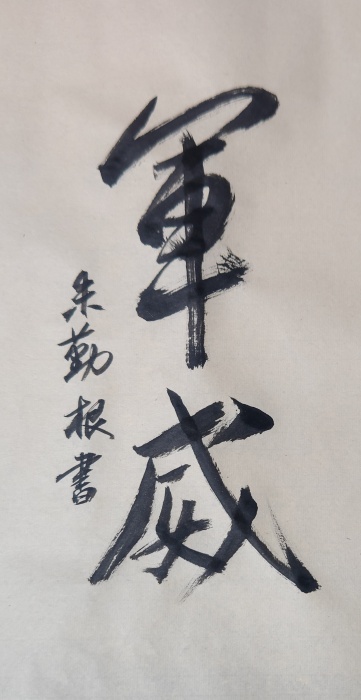 軍威
朱勤根書